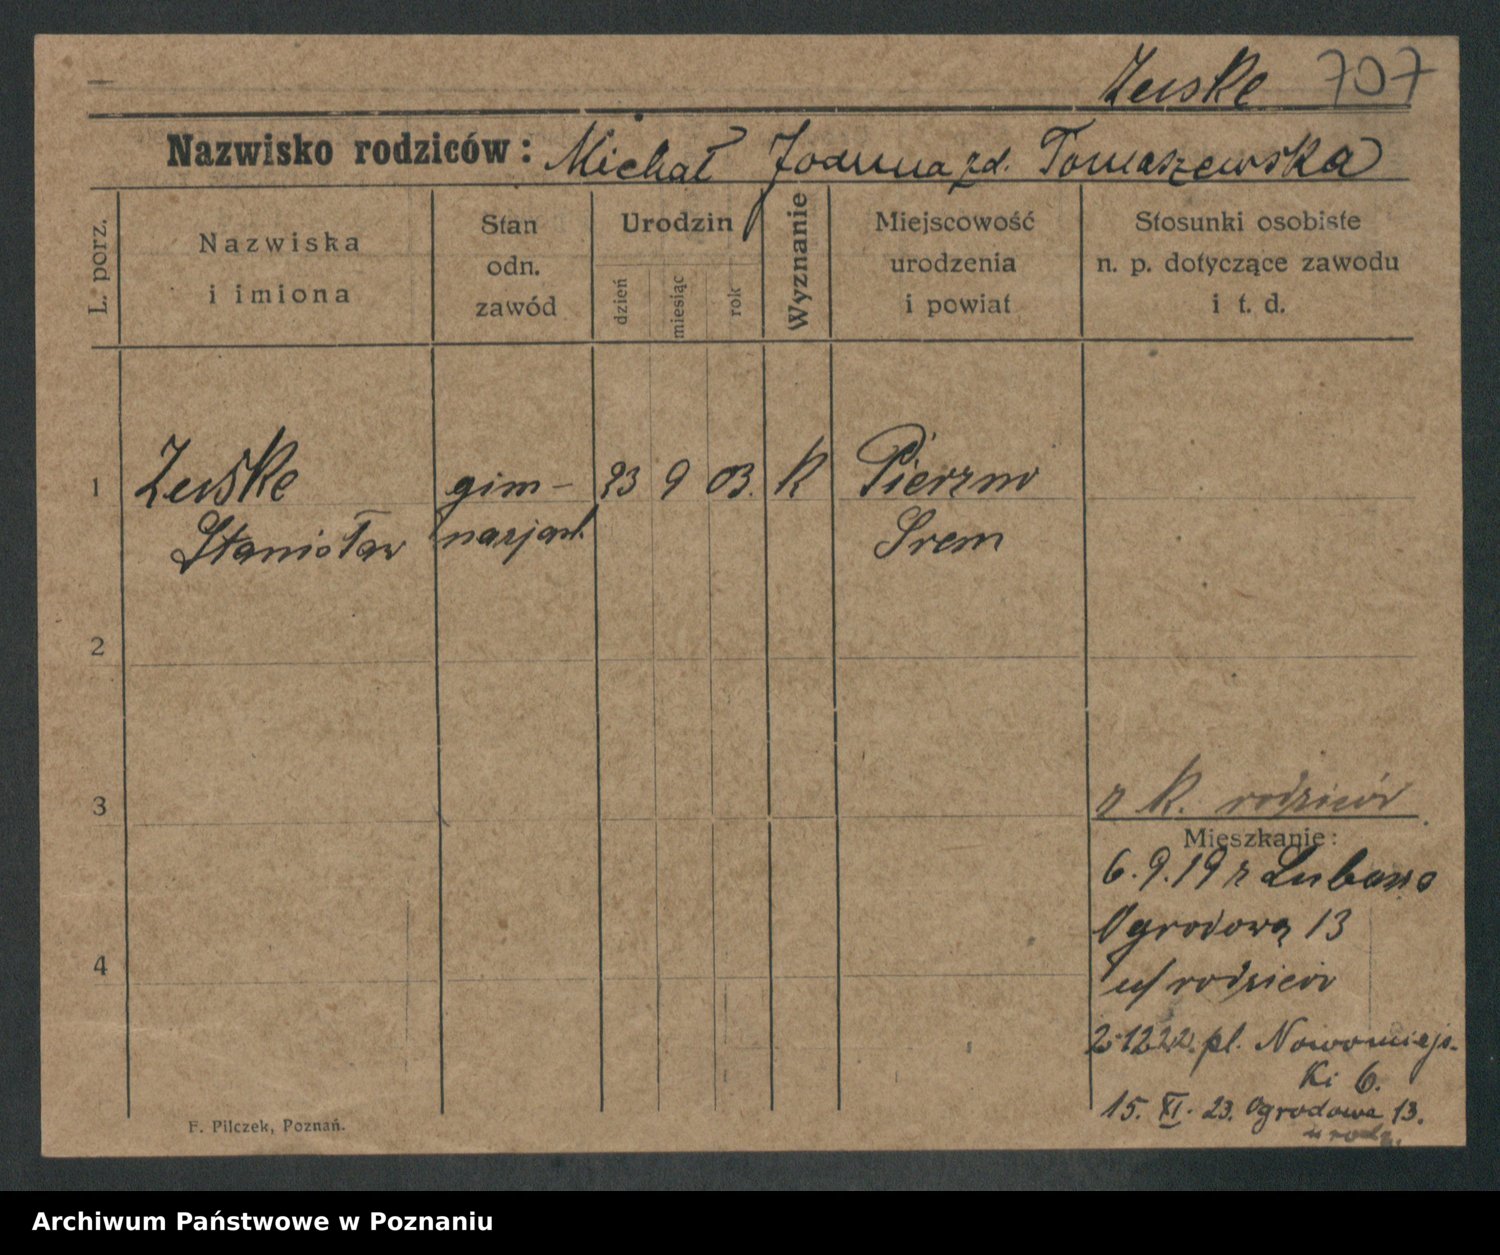 Zuske 707
Nazwisko rodziców: Michał Joanna zd. Tomaszewska
L. porz.
Nazwiska
i imiona
Stan
odn.
zawód
Urodzin
dzień
miesiąc
rok
Wyznanie
Miejscowość
urodzenia
i powiat
Stosunki osobiste
n. p. dotyczące zawodu
i t. d.
1 Zuske gim- 23 9 03. K
Stanisław nazjast. Śrem
2
3
z K. rodziców
Mieszkanie:
6.9.19 z Lubonia
Ogrodowa 13
u/ rodziców
4
2.12.22. pl. Nowomiejs-
ki 6.
15. XI. 23. Ogrodowa 13.
u rodz.
F. Pilczek, Poznań.
Archiwum Państwowe w Poznaniu